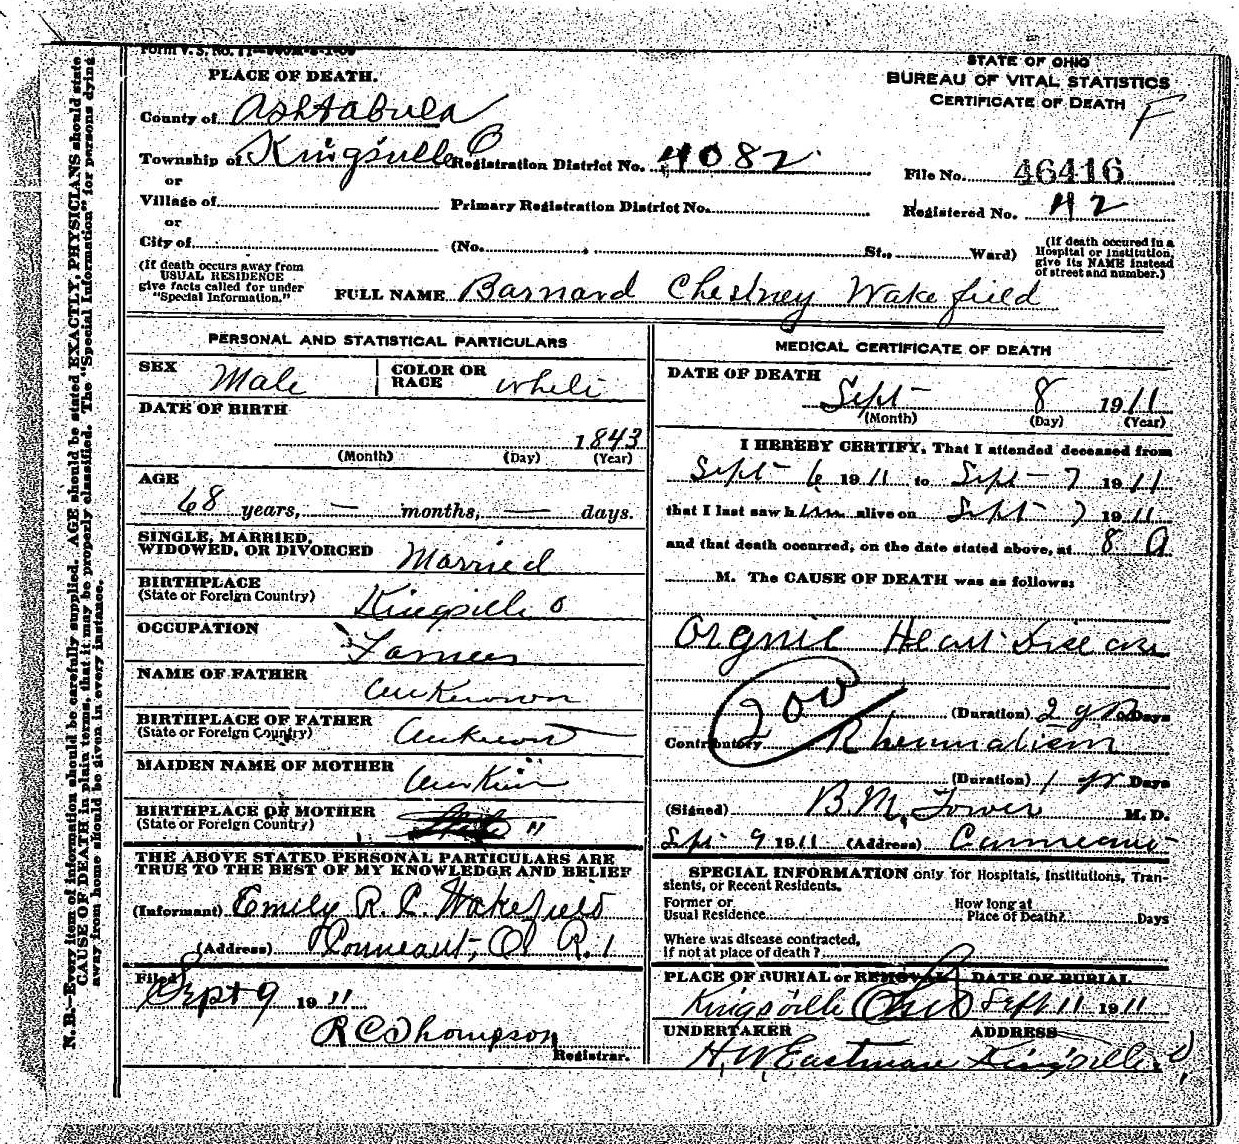 Form V. S. No. 11
PLACE OF DEATH.
STATE OF OHIO
BUREAU OF VITAL STATISTICS
CERTIFICATE OF DEATH
F
County of Ashtabula
Township of Kingsville O Registration District No. 4082
File No. 46416
or
Village of Primary Registration District No.
Registered No. 42
or
City of (No. , St., Ward)
(If death occured in a Hospital or Institution, give its NAME instead of street and number.)
(If death occurs away from USUAL RESIDENCE give facts called for under "Special Information.")
FULL NAME Barnard Chestney Wakefield
PERSONAL AND STATISTICAL PARTICULARS
SEX Male
COLOR OR RACE White
DATE OF BIRTH
1843
(Month) (Day) (Year)
AGE
68 years, — months, — days.
SINGLE, MARRIED, WIDOWED, OR DIVORCED Married
BIRTHPLACE
(State or Foreign Country) Kingsville O
OCCUPATION
Farmer
NAME OF FATHER
Unknown
BIRTHPLACE OF FATHER
(State or Foreign Country) Unknown
MAIDEN NAME OF MOTHER
BIRTHPLACE OF MOTHER
(State or Foreign Country) "
THE ABOVE STATED PERSONAL PARTICULARS ARE
TRUE TO THE BEST OF MY KNOWLEDGE AND BELIEF
(Informant) Emily R. C. Wakefield
(Address) Conneaut, O R. 1
Filed
Sept 9 1911
R C Thompson
Registrar.
MEDICAL CERTIFICATE OF DEATH
DATE OF DEATH
Sept 8 1911
(Month) (Day) (Year)
I HEREBY CERTIFY, That I attended deceased from
Sept 6 1911 to Sept 7 1911
that I last saw him alive on Sept 7 1911
and that death occurred, on the date stated above, at 8 A
M. The CAUSE OF DEATH was as follows:
Orgnic Heart Disease
200
(Duration) 2 yrs Days
Contributory Rheumatism
(Duration) 1 yr Days
(Signed) B. M. Tower M. D.
Sept 9 1911 (Address) Conneaut
SPECIAL INFORMATION only for Hospitals, Institutions, Tran-
sients, or Recent Residents.
Former or Usual Residence
How long at Place of Death? Days
Where was disease contracted,
if not at place of death?
PLACE OF BURIAL or REMOVAL DATE OF BURIAL
Kingsville Ohio Sept 11 1911
UNDERTAKER ADDRESS
H. W. Eastman Kingsville O,
N. B.—Every item of information should be carefully supplied. AGE should be stated EXACTLY, PHYSICIANS should state
CAUSE OF DEATH in plain terms, that it may be properly classified. The "Special Information" for persons dying
away from home should be given in every instance.